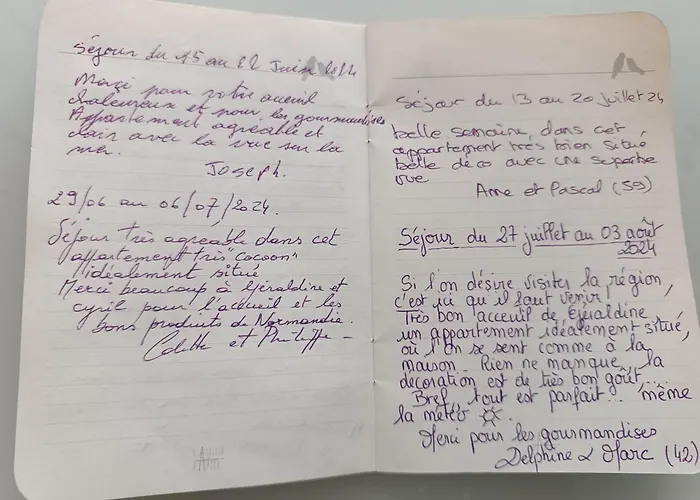 Séjour du 15 au 22 Juin 2024
Merci pour votre acceuil
chaleureux et pour les gourmandises
Appartement agréable et
clair avec la vue sur la
mer.
Joseph.
29/06 au 06/07/2024.
Séjour très agréable dans cet
appartement très "cocoon"
idéalement situé
Merci beaucoup à Géraldine et
cyril pour l'accueil et les
bons produits de Normandie.
Colette et Philippe -
Séjour du 13 au 20 juillet 24
belle semaine, dans cet
appartement très bien situé,
belle déco avec une superbe
vue
Anne et Pascal (59)
Séjour du 27 juillet au 03 août
2024
Si l'on désire visiter la région,
c'est ici qu'il faut venir
Très bon acceuil de Géraldine,
un appartement idéalement situé,
où l'on se sent comme à la
maison. Rien ne manque, la
décoration est de très bon goût...
Bref, tout est parfait... même
la météo
Merci pour les gourmandises
Delphine & Marc (42)